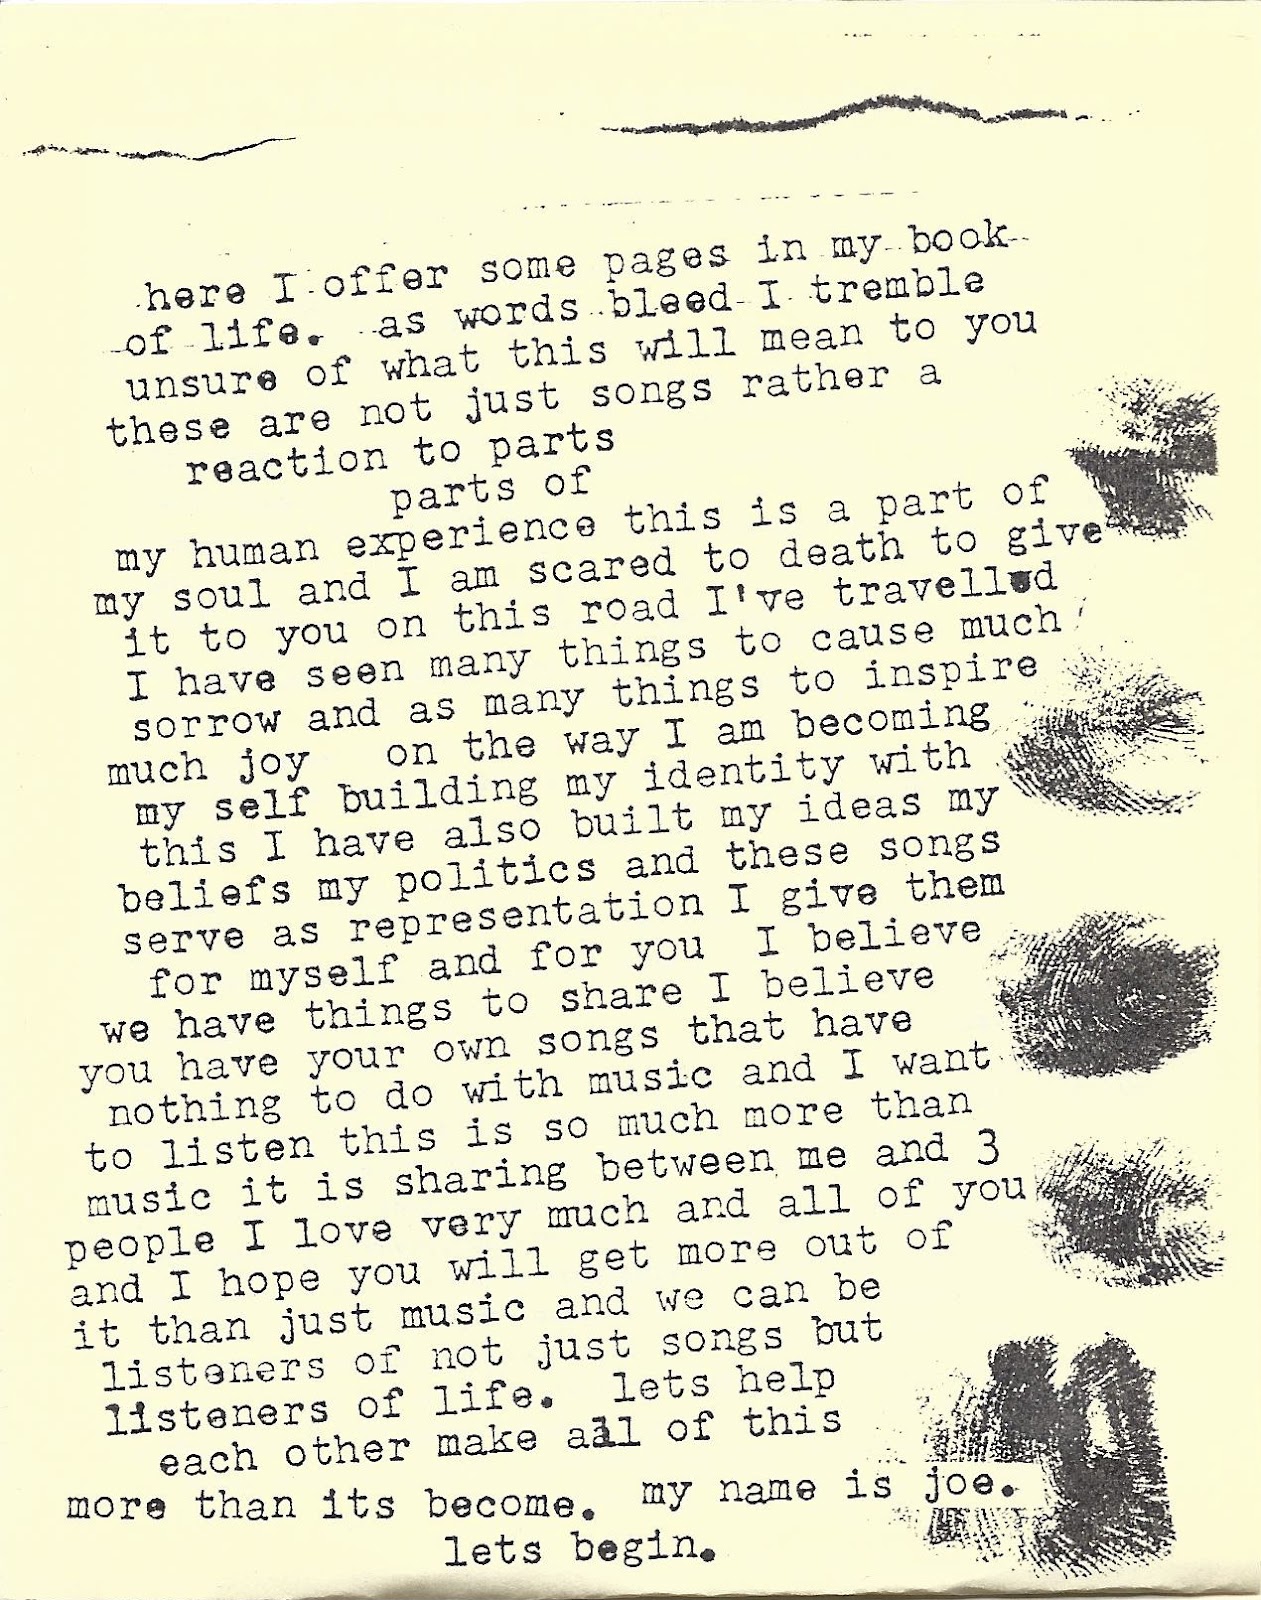 here I offer some pages in my book
of life. as words bleed I tremble
unsure of what this will mean to you
these are not just songs rather a
reaction to parts
parts of
my human experience this is a part of
my soul and I am scared to death to give
it to you on this road I've travelled
I have seen many things to cause much
sorrow and as many things to inspire
much joy on the way I am becoming
my self building my identity with
this I have also built my ideas my
beliefs my politics and these songs
serve as representation I give them
for myself and for you I believe
we have things to share I believe
you have your own songs that have
nothing to do with music and I want
to listen this is so much more than
music it is sharing between me and 3
people I love very much and all of you
and I hope you will get more out of
it than just music and we can be
listeners of not just songs but
listeners of life. lets help
each other make all of this
more than its become. my name is joe.
lets begin.